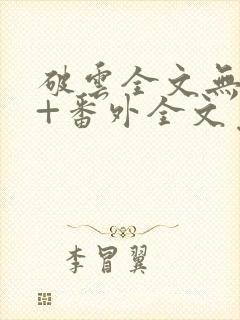 破雲全文無
+番外全文
李冒翼